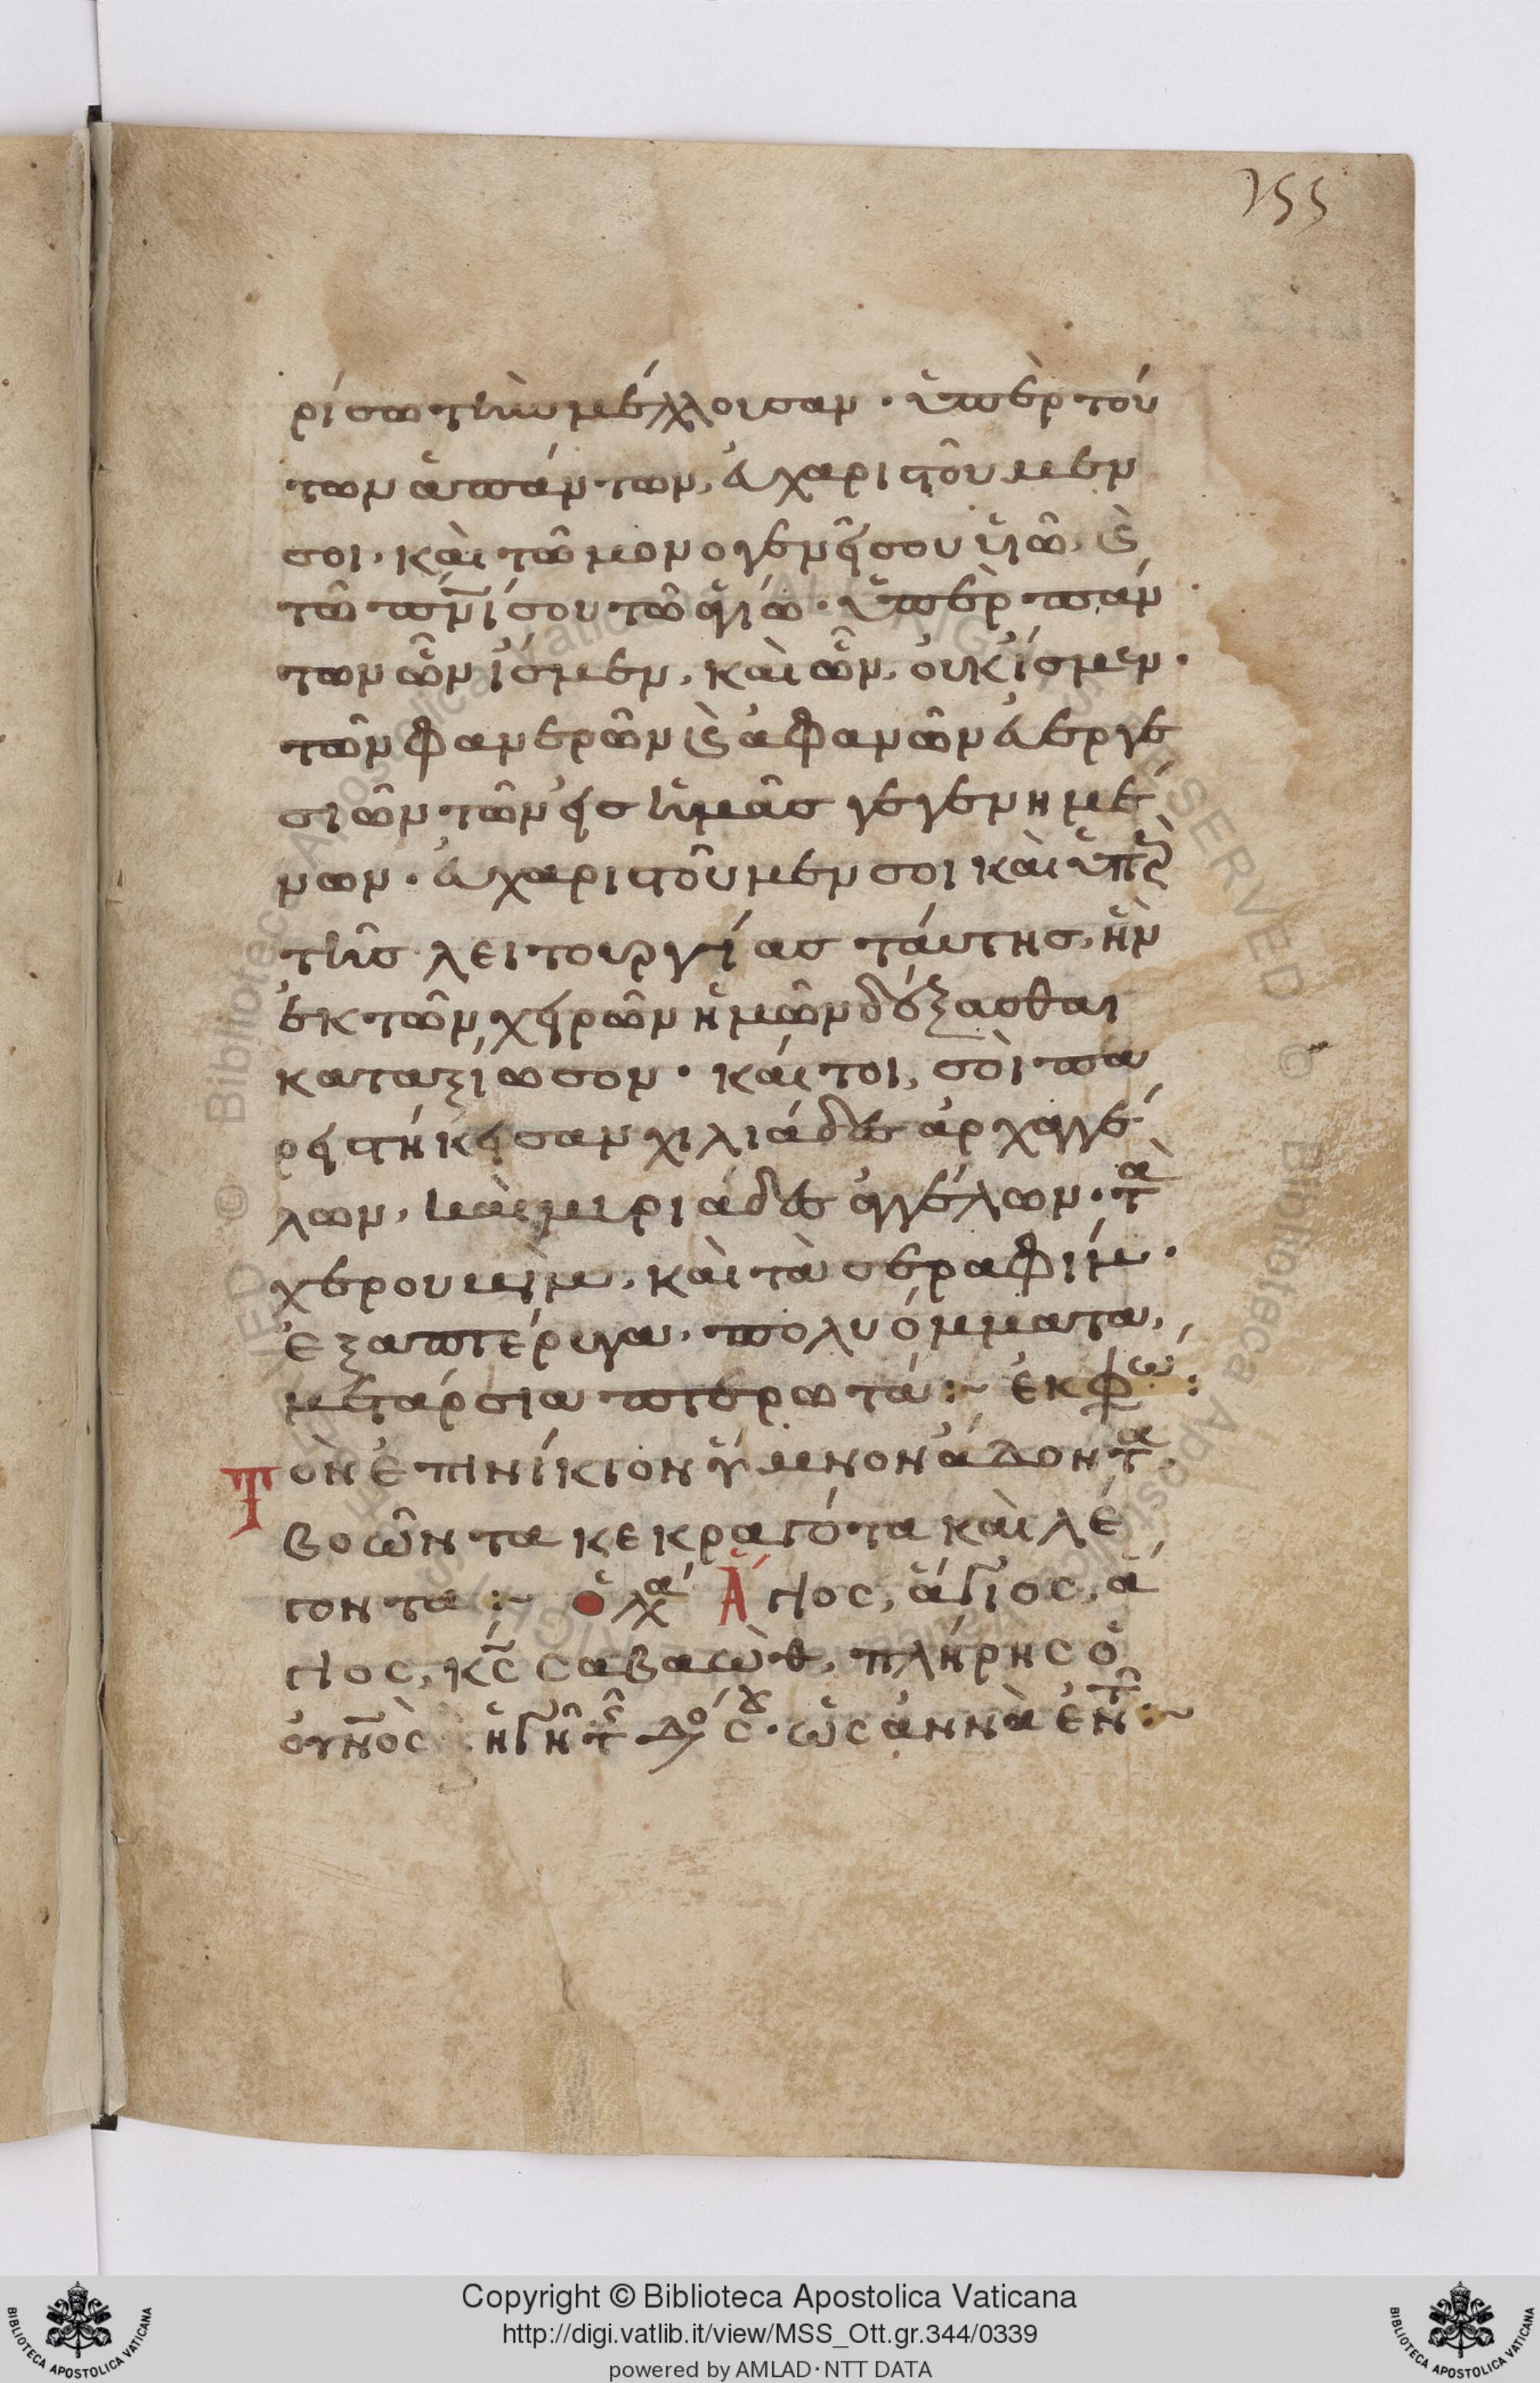 155
ρίσω τὴν μέλλουσαν · ὑπὲρ τού
των ἁπάντων, ἐυχαριστοῦμεν
σοι, καὶ τῶ μονογενῆ σου ὑιῶ, καὶ
τῶ πν̅ί σου τῶ ἁγίω · ὑπὲρ πάν
των ὧν ἴσμεν, καὶ ὧν, ὀυκ ἴσμεν ·
τῶν φανερῶν καὶ ἀφανῶν ἐυεργε
σιῶν τῶν εἰς ἡμᾶς γεγενημέ
νων · ἐυχαριστοῦμεν σοι καὶ ὑπὲρ
τῆς λειτουργίας τάυτης, ἣν
ἐκ τῶν χειρῶν ἡμῶν δέξασθαι
καταξίωσον · κάιτοι, σὸι πα
ρειστήκεισαν χιλιάδες ἀρχαγγέ
λων, καὶ μυριάδες ἀγγέλων · τὰ
χερουβὶμ, καὶ τὰ σεραφίμ ·
ἑξαπτέρυγα, πολυόμματα,
μετάρσια πτερωτά :~ ἐκφω :
Τὸν ἐπινίκιον ὕμνον ἄδοντα,
βοῶντα κεκραγότα καὶ λέ
γοντα :~ ὁ λα Ἅγιος, ἅγιος, ἅ
γιος, κ̅ς̅ σαβαὼθ, πλήρης ὁ
ὀυν̅ὸς ἡ γῆ τῆς δό σου · ὡσαννὰ ἐν τ :~
Copyright © Biblioteca Apostolica Vaticana
http://digi.vatlib.it/view/MSS_Ott.gr.344/0339
powered by AMLAD·NTT DATA